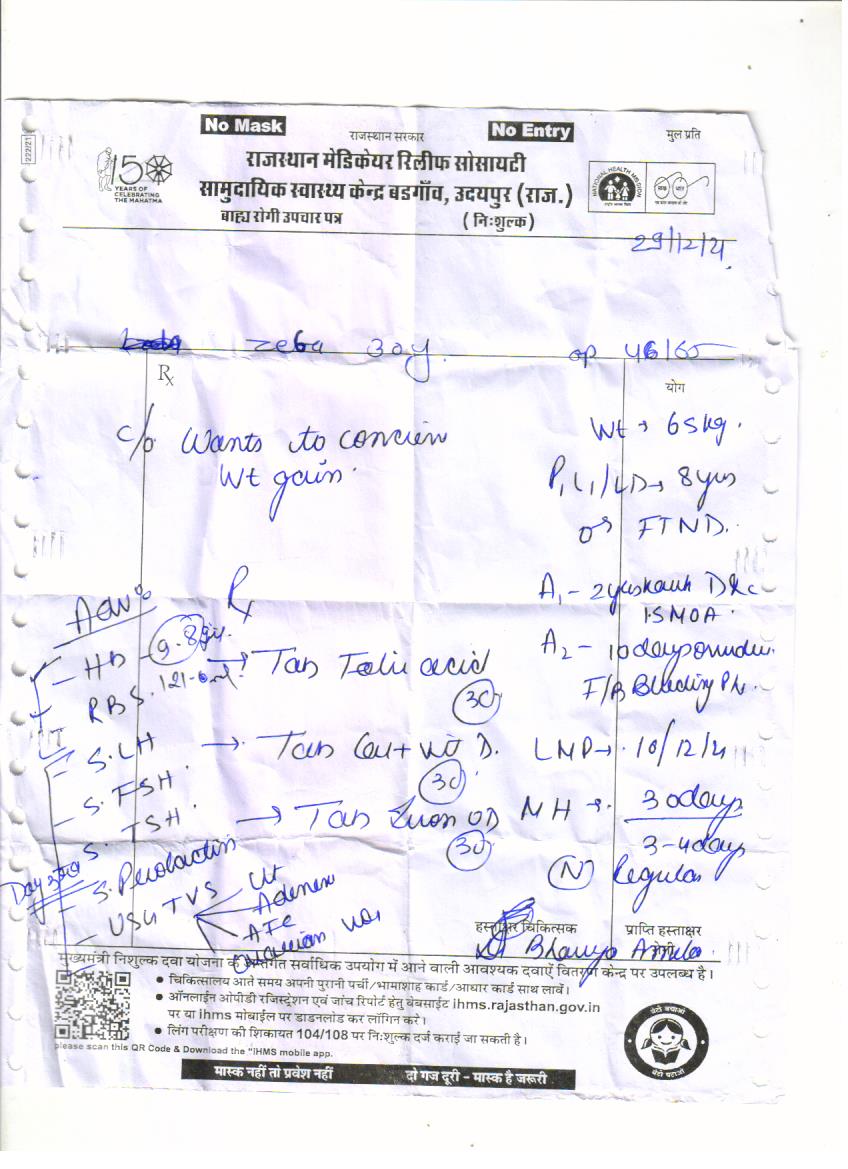 222/21
No Mask
राजस्थान सरकार
No Entry
मुल प्रति
राजस्थान मेडिकेयर रिलीफ सोसायटी
सामुदायिक स्वास्थ्य केन्द्र बडगाँव, उदयपुर (राज.)
बाह्य रोगी उपचार पत्र
( निःशुल्क)
150
YEARS OF
CELEBRATING
THE MAHATMA
NATIONAL HEALTH MISSION
29/12/21
Zeba 30y.
Rx
योग
c/o Wants to
Wt gain.
Wt → 65kg.
P1L1/LD → 8 yrs
FTND.
A1 -
A2 - 10 days
Adv
Rx
HB - 9.8
RBS. 121
→ Tab Folic acid
30
S. LH
→ Tab Cal + Vit D.
30
LMP → 10/12/21
S. FSH.
S. TSH.
→ Tab OD
30
MH → 30 days
3-4 days
S. Prolactin
N Regular
USG TVS
Ut
Adenexa
AFC
Ovarian
हस्ताक्षर चिकित्सक
प्राप्ति हस्ताक्षर
रोगी
मुख्यमंत्री निशुल्क दवा योजना के अन्तर्गत सर्वाधिक उपयोग में आने वाली आवश्यक दवाऐं वितरण केन्द्र पर उपलब्ध है।
• चिकित्सालय आते समय अपनी पुरानी पर्ची/भामाशोह कार्ड/आधार कार्ड साथ लावें।
• ऑनलाईन ओपीडी रजिस्ट्रेशन एवं जांच रिपोर्ट हेतु बेबसाईट ihms.rajasthan.gov.in
पर या ihms मोबाईल पर डाडनलोड कर लॉगिन करे।
• लिंग परीक्षण की शिकायत 104/108 पर निःशुल्क दर्ज कराई जा सकती है।
please scan this QR Code & Download the "iHMS mobile app.
बेटी बचाओ
बेटी पढ़ाओ
मास्क नहीं तो प्रवेश नहीं
दो गज दूरी – मास्क है जरूरी